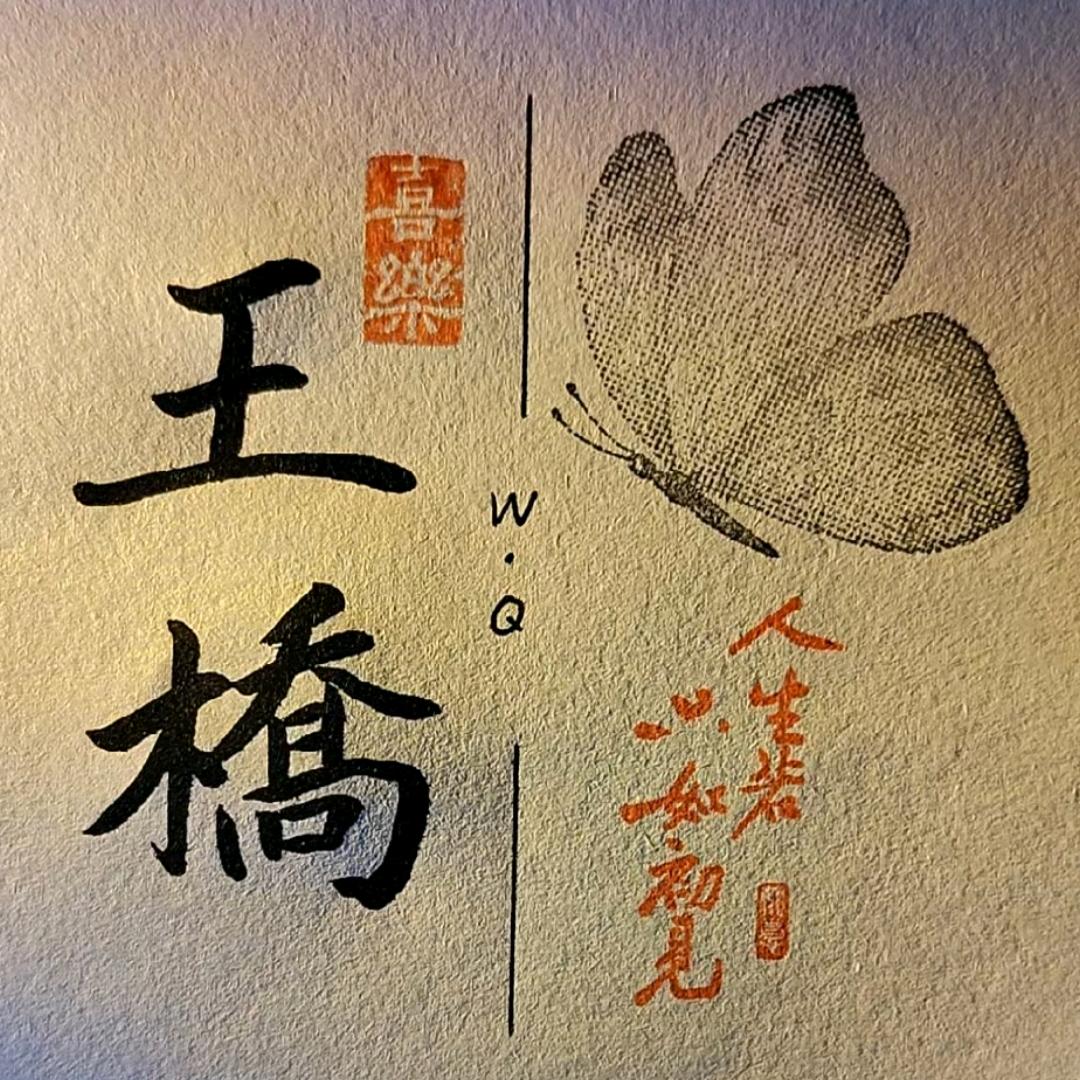 王橋
喜樂
W·Q
人生若
只如初見